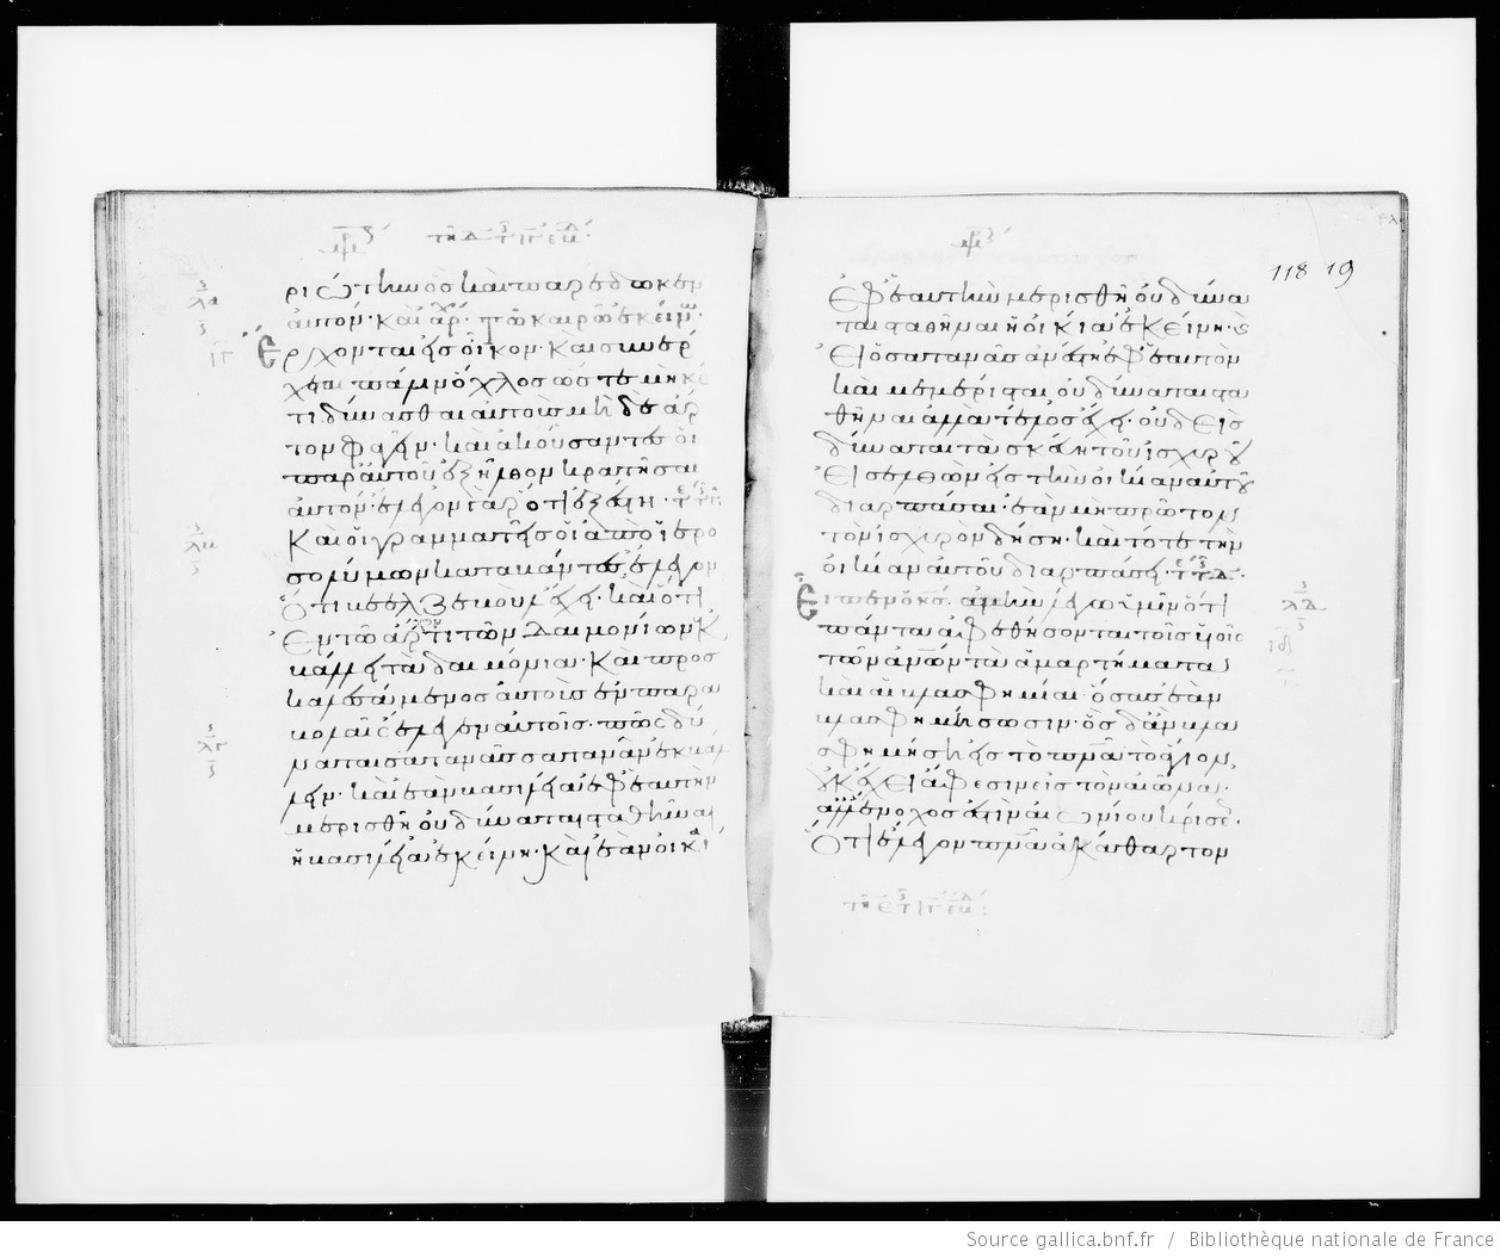 ριώτην ὃς καὶ παρέδωκεν
αὐτόν· καὶ
Ἔρχονται εἰς οἶκον· καὶ συνέρ
χεται πάλιν ὄχλος ὥστε μὴ
τι δύνασθαι αὐτοὺς μὴ δὲ ἄρ
τον φαγεῖν· καὶ ἀκούσαντες οἱ
παρ αὐτοῦ ἐξῆλθον κρατῆσαι
αὐτόν· ἔλεγον γὰρ ὅτι ἐξέστη·
Καὶ οἱ γραμματεῖς οἱ ἀπὸ ἱερο
σολύμων καταβάντες ἔλεγον
Ὅτι βεελζεβοὺλ ἔχει· καὶ ὅτι
Ἐν τῷ ἄρχοντι τῶν δαιμονίων ἐκ
βάλλει τὰ δαιμόνια· Καὶ προσ
καλεσάμενος αὐτοὺς ἐν παρα
βολαῖς ἔλεγεν αὐτοῖς· πῶς δύ
ναται σατανᾶς σατανᾶν ἐκβάλ
λειν· καὶ ἐὰν βασιλεία ἐφ ἑαυτὴν
μερισθῇ οὐ δύναται σταθῆναι
ἡ βασιλεία ἐκείνη· Καὶ ἐὰν οἰκί
118 19
Ἐφ ἑαυτὴν μερισθῇ οὐ δύνα
ται σταθῆναι ἡ οἰκία ἐκείνη·
Εἰ ὁ σατανᾶς ἀνέστη ἐφ ἑαυτὸν
καὶ μεμέρισται οὐ δύναται στα
θῆναι ἀλλὰ τέλος ἔχει· οὐδεὶς
δύναται τὰ σκεύη τοῦ ἰσχυροῦ
Εἰσελθὼν εἰς τὴν οἰκίαν αὐτοῦ
διαρπάσαι· ἐὰν μὴ πρῶτον
τὸν ἰσχυρὸν δήσῃ· καὶ τότε τὴν
οἰκίαν αὐτοῦ διαρπάσει·
Εἶπεν ὁ κς· ἀμὴν λέγω ὑμῖν ὅτι
πάντα ἀφεθήσονται τοῖς υἱοῖς
τῶν ἀνων τὰ ἁμαρτήματα
καὶ αἱ βλασφημίαι ὅσας ἐὰν
βλασφημήσωσιν· ὃς δ ἂν βλα
σφημήσῃ εἰς τὸ πνα τὸ ἅγιον
οὐκ ἔχει ἄφεσιν εἰς τὸν αἰῶνα·
ἀλλ ἔνοχος ἐστὶν αἰωνίου κρίσε·
Ὅτι ἔλεγον πνα ἀκάθαρτον